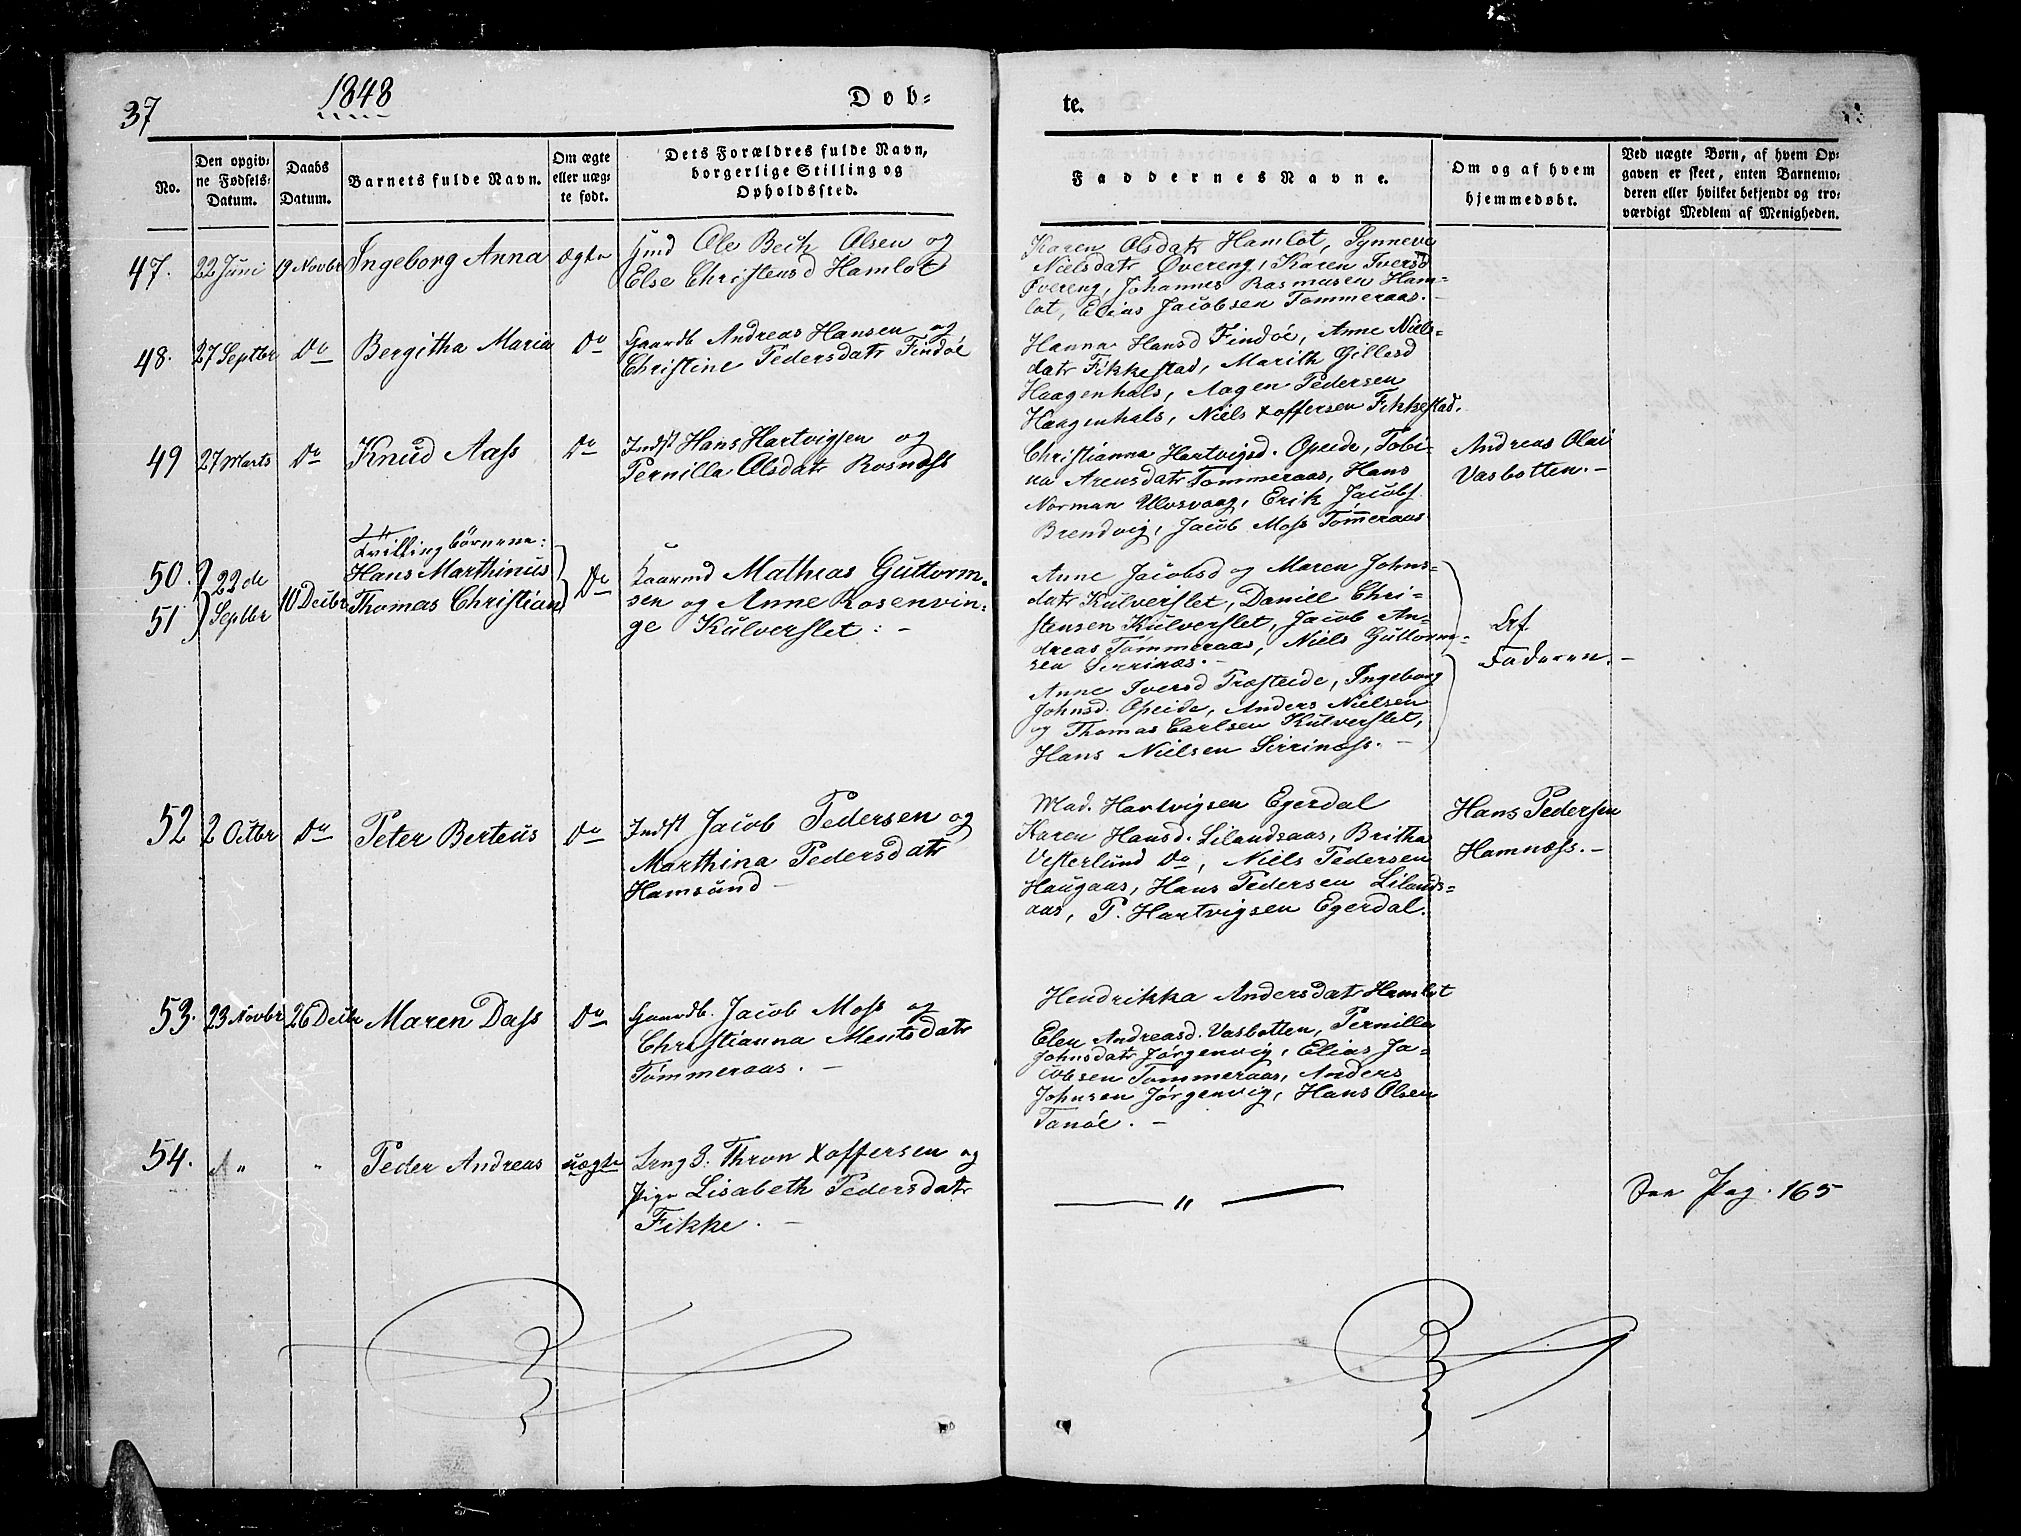 37
1848
Døb-
te.
No.
Den opgiv-
ne Fødsels-
Datum.
Daabs
Datum.
Barnets fulde Navn.
Om ægte
eller uæg-
te født.
Dets Forældres fulde Navn,
borgerlige Stilling og
Opholdssted.
Faddernes Navne.
Om og af hvem
hjemmedøbt.
Ved uægte Børn, af hvem Op-
gaven er skeet, enten Barnemo-
deren eller hvilket bekjendt og tro-
værdigt Medlem af Menigheden.
47. 22 Juni 19 Novbr Ingeborg Anna ægte
Ole Bech Olsen og
Else Christensd Hamlot
Karen Olsdatr Hamlot, Synneve
Nielsdatr Øvereng, Karen Iversd
Øvereng, Johannes Rasmusen Ham-
lot, Elias Jacobsen Tømmeraas.-
48. 27 Septbr Do Bergitha Maria Do
Gaardb Andreas Hansen og
Christine Pedersdatr Findöe
Hanna Hansd Findöe, Anne Niels-
datr Fikkestad, Marith Gillesd
Haagenhals, Aagen Pedersen
Haagenhals, Niels Xoffersen Fikkestad.
49 27 Marts Do Knud Aass Do
Indst Hans Hartvigsen og
Pernilla Olsdatr Rosnæss
Christianna Hartvigsd. Opeide, Tobi-
na Arensdatr Tømmeraas, Hans
Norman Ulvsvaag, Erik Jacobs.
Brendvig, Jacob Moss Tömeraas
Andreas Olai
Vasbotten.-
Tvillingbörnene:
50. 22de
51 Septbr
10 Decbr
Hans Marthinus
Thomas Christian
Do
Mathias Guttorm-
sen og Anne Rosenvin-
ge Kulverslet:-
Anne Jacobsd og Maren Johns-
datr Kulverslet, Daniel Chri-
stensen Kulverslet, Jacob An-
dreas Tømmeraas, Niels Guttorm-
sen Serrinæs.-
Anne Iversd Præsteide, Ingeborg
Johnsd. Opeide, Anders Nielsen
og Thomas Carlsen Kulverslet,
Hans Nielsen Serrinæss.-
Faderen.-
52 2 Octbr Do Peter Berteus Do
Indst Jacob Pedersen og
Marthina Pedersdatr
Hamsund-
Mad. Hartvigsen Egerdal
Karen Hansd. Lilandsaas, Britha
Vesterlund Do, Niels Pedersen
Haugaas, Hans Pedersen Lilands-
aas, P. Hartvigsen Egerdal.
Hans Pedersen
Hamnæss.-
53. 23 Novbr 26 Decbr Maren Dass Do
Gaardb. Jacob Moss og
Christianna Mentsdatr
Tömmeraas.-
Hendrikka Andersdatr Hamlot
Elen Andreasd. Vasbotten, Pernilla
Johnsdatr Jørgenvig, Elias Ja-
cobsen Tømmeraas, Anders
Johnsen Jørgenvig, Hans Olsen
Tanöe.-
54. " " Peder Andreas uægte
Thron Xoffersen og
Pige Lisabeth Pedersdatr
Fikke.-
— " —
See Pag. 165